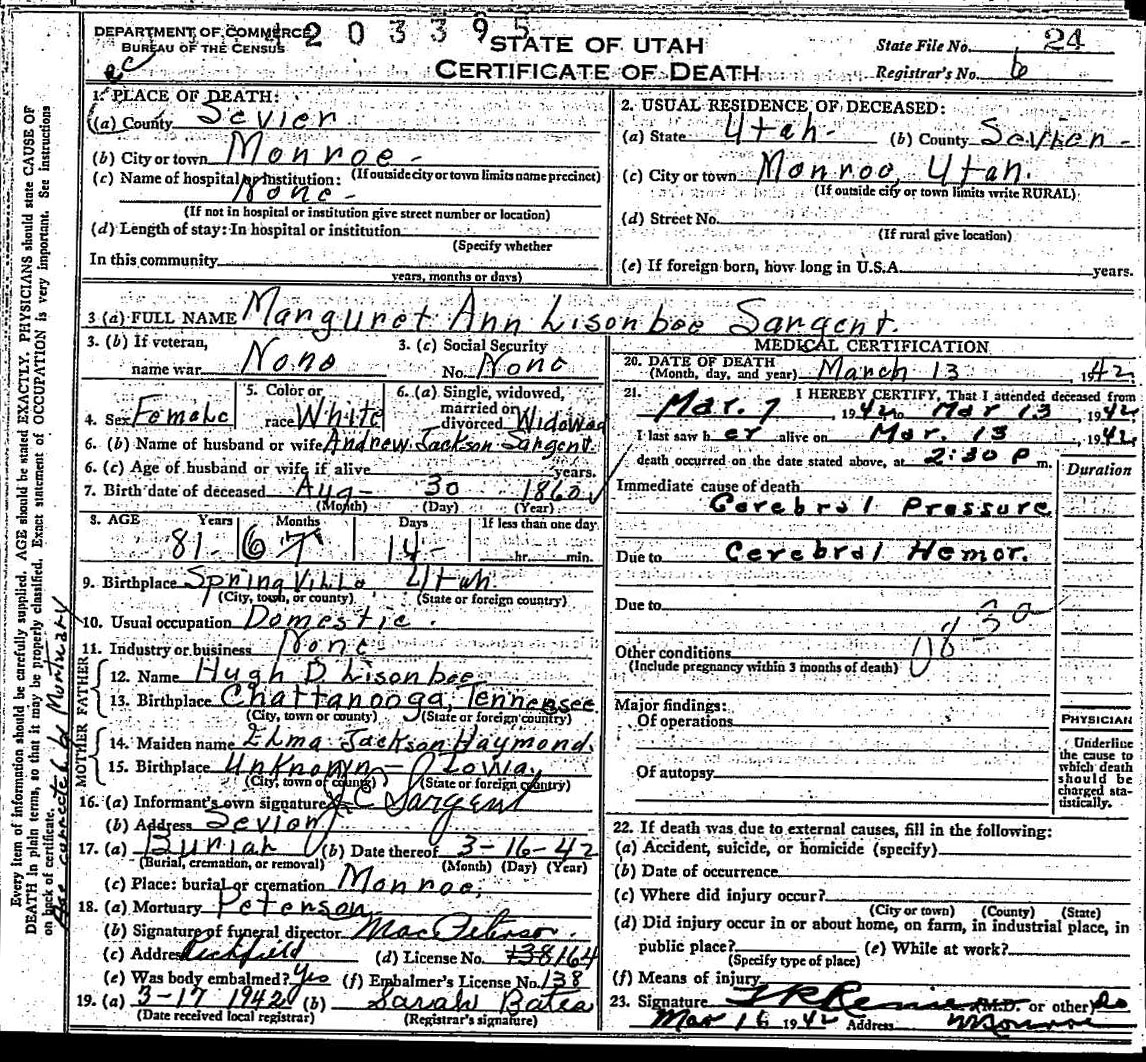 DEPARTMENT OF COMMERCE
BUREAU OF THE CENSUS
203395
STATE OF UTAH
CERTIFICATE OF DEATH
State File No. 24
Registrar's No. 6
Every item of information should be carefully supplied. AGE should be stated EXACTLY. PHYSICIANS should state CAUSE OF
DEATH in plain terms, so that it may be properly classified. Exact statement of OCCUPATION is very important. See instructions
on back of certificate.
Age corrected by Mortuary
1. PLACE OF DEATH:
(a) County Sevier
(b) City or town Monroe -
(If outside city or town limits name precinct)
(c) Name of hospital or institution:
None -
(If not in hospital or institution give street number or location)
(d) Length of stay: In hospital or institution
(Specify whether
In this community
years, months or days)
2. USUAL RESIDENCE OF DECEASED:
(a) State Utah - (b) County Sevier -
(c) City or town Monroe, Utah.
(If outside city or town limits write RURAL)
(d) Street No.
(If rural give location)
(e) If foreign born, how long in U.S.A. years.
3 (a) FULL NAME Marguret Ann Lisonbee Sargent.
3. (b) If veteran,
name war None
3. (c) Social Security
No. None
4. Sex Female
5. Color or
race White
6. (a) Single, widowed,
married or
divorced Widowed
6. (b) Name of husband or wife Andrew Jackson Sargent.
6. (c) Age of husband or wife if alive years.
7. Birth date of deceased Aug - 30 1860
(Month) (Day) (Year)
8. AGE Years Months Days If less than one day
81 - 6 7 14 - hr. min.
9. Birthplace Springville Utah.
(City, town, or county) (State or foreign country)
10. Usual occupation Domestic.
11. Industry or business None
FATHER
12. Name Hugh D Lisonbee
13. Birthplace Chattanooga, Tennensee
(City, town or county) (State or foreign country)
MOTHER
14. Maiden name Elma Jackson Haymond.
15. Birthplace Unknown - Iowa.
(City, town or county) (State or foreign country)
16. (a) Informant's own signature C Sargent
(b) Address Sevier
17. (a) Burial (b) Date thereof 3-16-42
(Burial, cremation, or removal) (Month) (Day) (Year)
(c) Place: burial or cremation Monroe,
18. (a) Mortuary Peterson
(b) Signature of funeral director Mac Peterson.
(c) Address Richfield (d) License No. 138164
(e) Was body embalmed? Yes (f) Embalmer's License No. 138
19. (a) 3-17 1942 (b) Sarah Bates
(Date received local registrar) (Registrar's signature)
MEDICAL CERTIFICATION
20. DATE OF DEATH
(Month, day, and year) March 13, 1942.
21. I HEREBY CERTIFY, That I attended deceased from
Mar. 7, 1942 to Mar 13, 1942
I last saw her alive on Mar. 13, 1942
death occurred on the date stated above, at 2:30 P m.
Duration
Immediate cause of death
Cerebral Pressure
Due to Cerebral Hemor.
Due to
083a
Other conditions
(Include pregnancy within 3 months of death)
Major findings:
Of operations
Of autopsy
PHYSICIAN
Underline
the cause to
which death
should be
charged sta-
tistically.
22. If death was due to external causes, fill in the following:
(a) Accident, suicide, or homicide (specify)
(b) Date of occurrence
(c) Where did injury occur?
(City or town) (County) (State)
(d) Did injury occur in or about home, on farm, in industrial place, in
public place? (e) While at work?
(Specify type of place)
(f) Means of injury
23. Signature (M.D. or other) Do
Mar 16 1942 Address Monroe